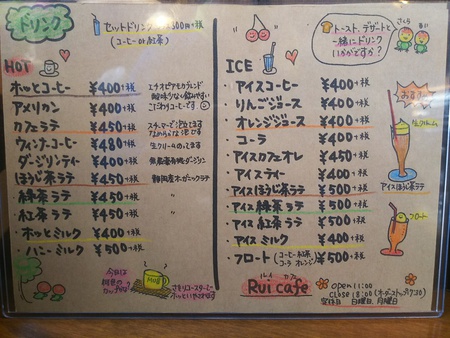 ドリンク
セットドリンク ¥300円+税
(コーヒーor紅茶)
HOT
ホットコーヒー ¥400+税 エチオピアモカブレンド
酸味少なく飲みやすい
アメリカン ¥400+税 こだわりコーヒーです
カフェラテ ¥450+税 スチーマーで泡立てます
なめらかな泡です
ウィンナーコーヒー ¥480+税 生クリームのってます
ダージリンティー ¥400+税 無農薬有機ダージリン
ほうじ茶ラテ ¥450+税 静岡産オーガニックラテ
緑茶ラテ ¥450+税 〃
紅茶ラテ ¥450+税 〃
ホットミルク ¥400+税
ハニーミルク ¥500+税
今日は
何色の
カップかな?
MUG
トースト、デザートと
一緒にドリンク
いかがですか?
さくら
ICE
アイスコーヒー ¥400+税
りんごジュース ¥400+税
オレンジジュース ¥400+税
コーラ ¥400+税
アイスカフェオレ ¥450+税
アイスティー ¥400+税
アイスほうじ茶ラテ ¥500+税
アイス緑茶ラテ ¥500+税
アイス紅茶ラテ ¥500+税
アイスミルク ¥400+税
フロート (コーヒー、紅茶 コーラ オレンジ) ¥500+税
おすすめ
生クリーム
アイスほうじ茶ラテ
フロート
ルイ カフェ
Rui cafe
open 11:00
close 18:00 (オーダーストップ17:30)
定休日 日曜日、月曜日